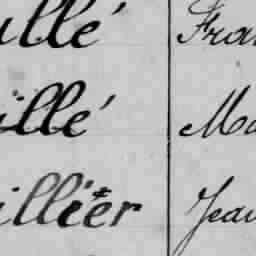 illé Fran
illé Ma
illier Jean